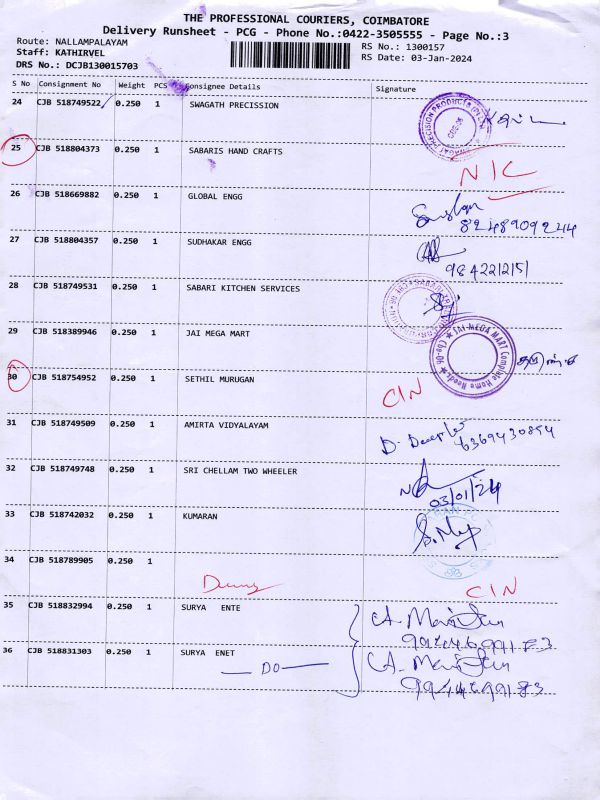 THE PROFESSIONAL COURIERS, COIMBATORE
Delivery Runsheet - PCG - Phone No.:0422-3505555 - Page No.:3
Route: NALLAMPALAYAM RS No.: 1300157
Staff: KATHIRVEL RS Date: 03-Jan-2024
DRS No.: DCJB130015703
S No Consignment No Weight PCS Consignee Details Signature
24 CJB 518749522 0.250 1 SWAGATH PRECISSION
25 CJB 518804373 0.250 1 SABARIS HAND CRAFTS
N/C
26 CJB 518669882 0.250 1 GLOBAL ENGG
8248909244
27 CJB 518804357 0.250 1 SUDHAKAR ENGG
9842212151
28 CJB 518749531 0.250 1 SABARI KITCHEN SERVICES
29 CJB 518389946 0.250 1 JAI MEGA MART
JAI MEGA MART Complete Home Needs
30 CJB 518754952 0.250 1 SETHIL MURUGAN
C/N
31 CJB 518749509 0.250 1 AMIRTA VIDYALAYAM
6369430854
32 CJB 518749748 0.250 1 SRI CHELLAM TWO WHEELER
03/01/24
33 CJB 518742032 0.250 1 KUMARAN
34 CJB 518789905 0.250 1
C/N
35 CJB 518832994 0.250 1 SURYA ENTE
36 CJB 518831303 0.250 1 SURYA ENET
DO